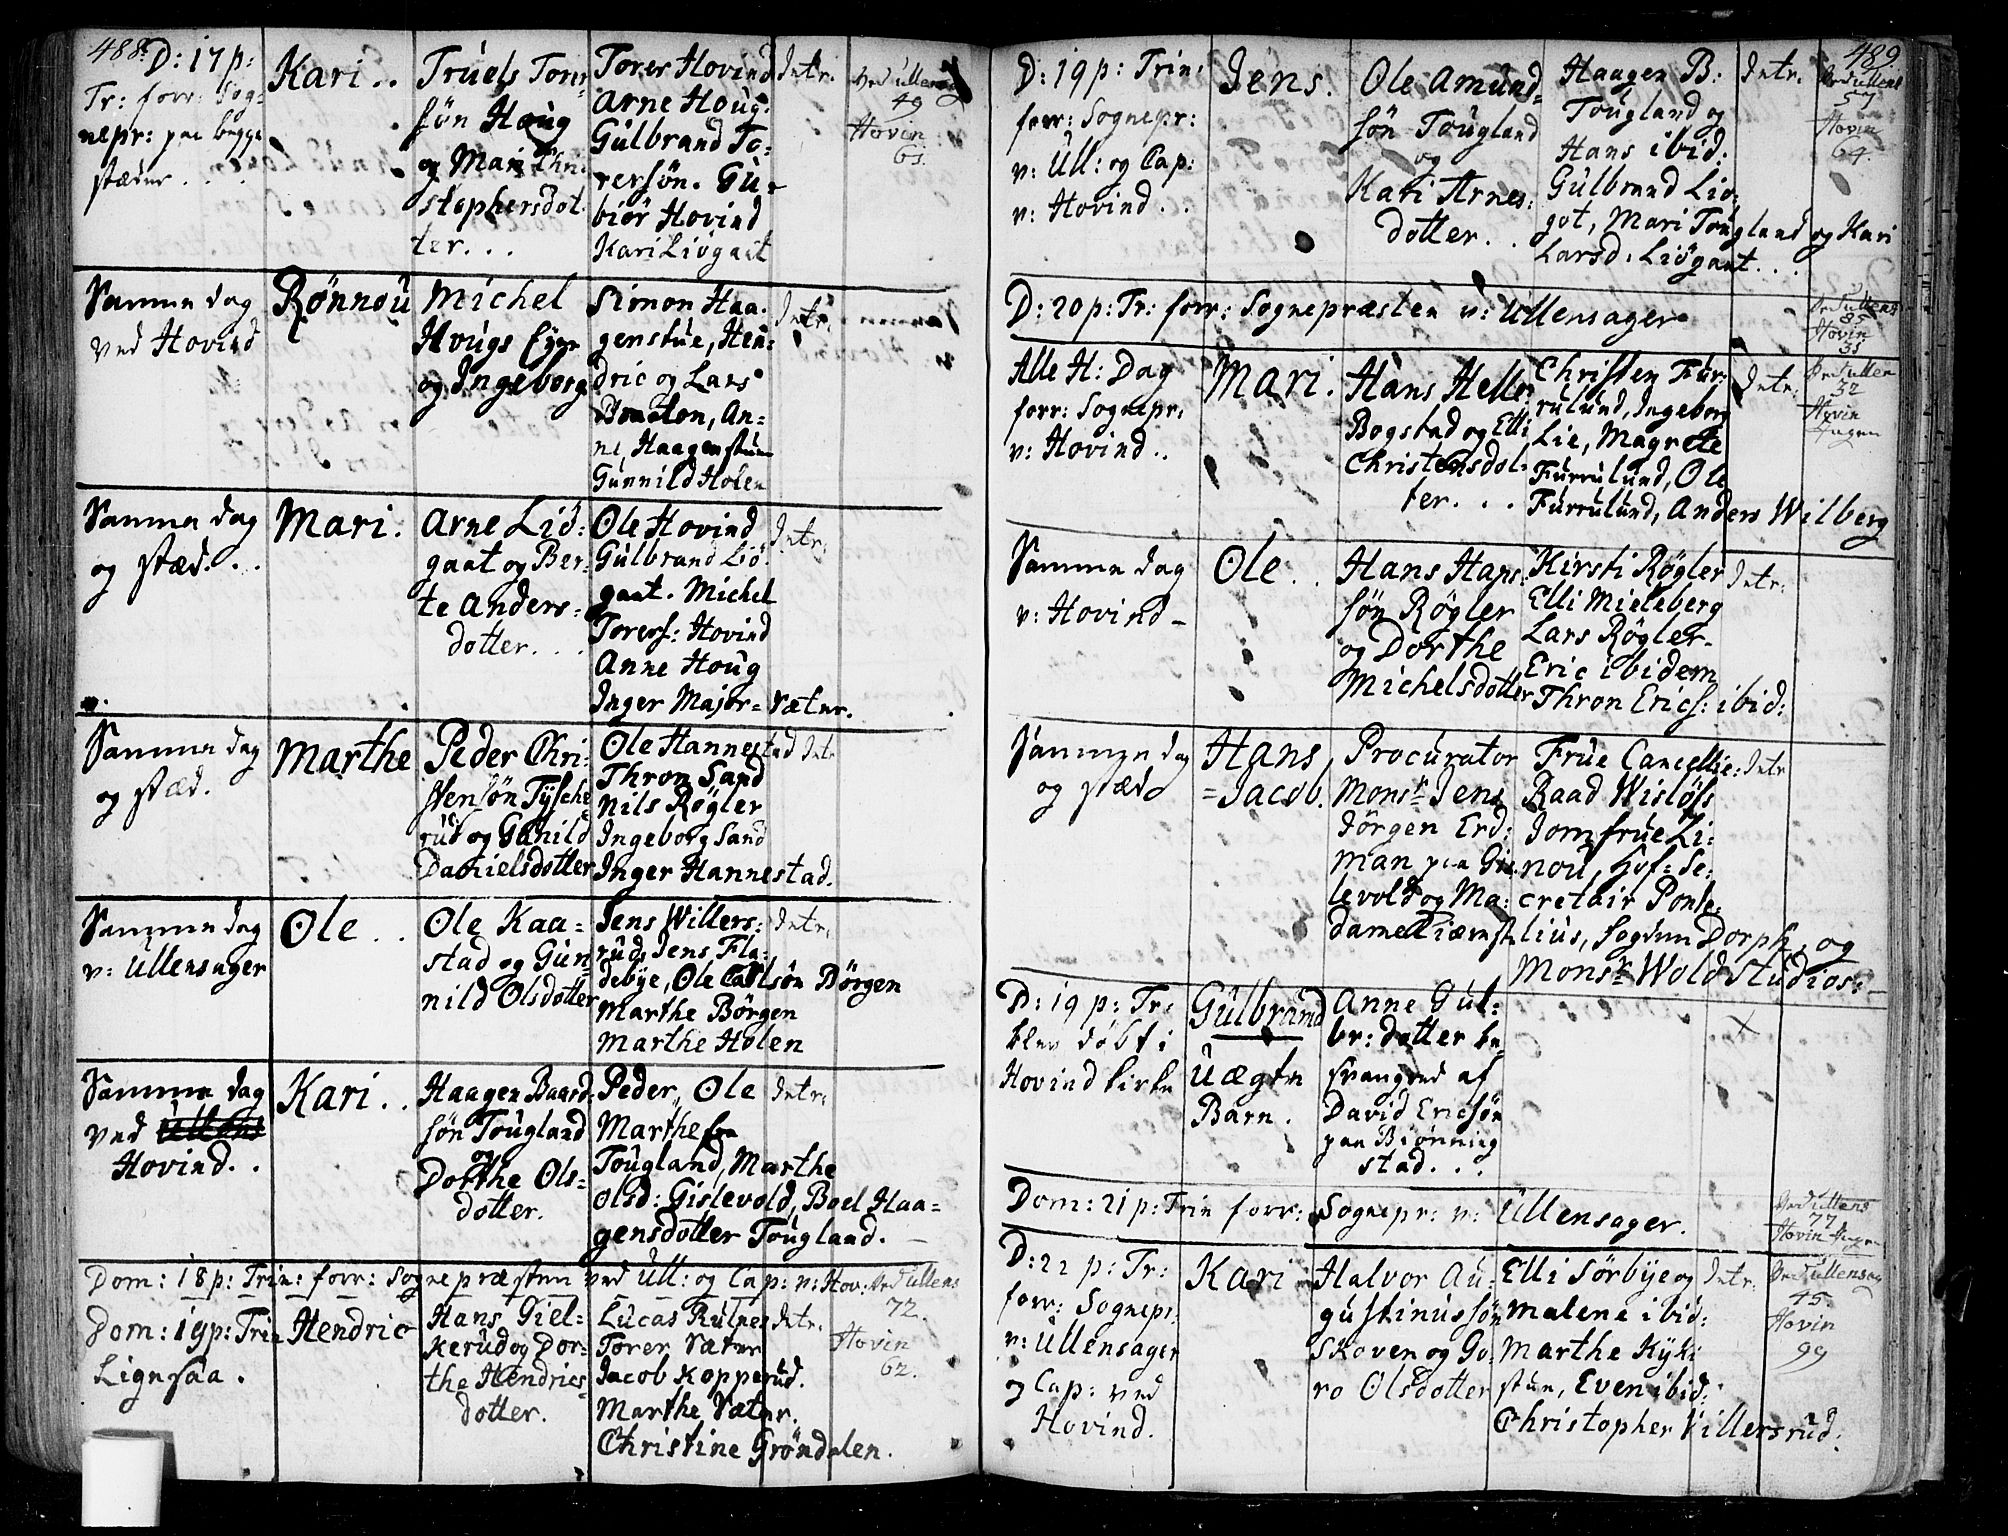 488.
D: 17 p:
Tr: forr: Sog=
nepr: paa begge
stæder . . .
Kari . .
Truels Torer
søn Houg
og Mari Chri
stophersdot
ter. . .
Torer Hovind
Arne Houg.
Gulbrand To=
rersøn. Gu=
biør Hovind
Kari Liøgaat
Intr.
Ved Ullens
49
Hovin
61.
Samme dag
ved Hovind
Rønnou
Michel
Hougs Eyer
og Ingeborg
Simon Haa.
genstue, Hen=
dric og Lars
An=
ne, Haagenstue
Gunnild Holen
Intr.
Samme dag
og stæd. . .
Mari.
Arne Liø=
gaat og Ber=
te Anders=
dotter. . .
Ole Hovind
Gulbrand Liø
gaat. Michel
Torers: Hovind
Anne Houg
Inger Major= Sæter.
Intr.
Samme dag
og stæd.
Marthe
Peder Chri=
stensøn Tysche
rud og Gunild
Danielsdotter
Ole Hannestad
Thron Sand
Nils Røgler
Ingeborg Sand
Inger Hannestad.
Intr
Samme dag
v: Ullensager
Ole . .
Ole Kaa=
stad og Gun
nild Olsdotter
Jens Willers=
rud, Jens Fla=
debye, Ole Carlsøn Børgen
Marthe Børgen
Marthe Holen
Intr.
Samme dag
ved
Hovind. .
Kari . .
Haagen Baard=
søn Tougland
og
Dorthe Ols=
dotter.
Peder, Ole
Marthe fra
Tougland, Marthe
Olsd: Gislevold, Boel Haa=
gensdotter Tougland.
Intr.
Dom: 18 p: Trin: forr: Sognepræsten ved Ull: og Cap: v: Hov: Ved Ullens
72.
Hovin
62.
Dom: 19 p: Trin
Lignsaa.
Hendric
Hans Giel=
kerud og Dor=
the Hendrics=
dotter.
Lucas Kulnes
Torer Sæter
Jacob Kopperud.
Marthe Sæter.
Christine Grøndalen.
Intr.
489.
D: 19 p: Trin:
forr: Sognepr:
v: Ull: og Cap:
v: Hovind . .
Jens.
Ole Amund=
søn Tougland
og
Kari Arnes=
dotter. .
Haagen B:
Tougland og
Hans ibid:
Gulbrand Liø=
got, Mari Tougland og Kari
Larsd: Liøgaat. . .
Intr.
Ved Ullens
57
Hovin
64.
D: 20 p: Tr: forr: Sognepræsten v: Ullensager
Ved Ullens
85
Hovin
31
Alle H: Dag
forr: Sognepr:
v: Hovind . .
Mari.
Hans Helle
Bogstad og Elli
Christensdot
ter. . .
Christen Fur=
rulund, Ingeborg
Lie, Magrete
Furrulund, Ole
Furrulund, Anders Wilberg
Intr.
Ved Ullen
32
Hovin
Ingen
Samme dag
v: Hovind _
Ole . .
Hans Hans
søn Røgler
og Dorthe
Michelsdotter
Kirsti Røgler
Elli Mieleberg
Lars Røgler
Eric ibidem
Thron Erics: ibid:
Intr.
Samme dag
og stæd
Hans
=Jacob.
Procurator
Monsr Jens
Jörgen Erd=
man paa Gis
levold og Ma=
dame
Frue Cancellie=
Raad Wisløfs
Jomfrue Li=
nou, Hof=Se=
cretair Ponte
lius, Sogdun Dorph, og
Monsr Wold Studios:
Intr
D: 19 p: Tr:
blev døbt i
Hovind kirke
Gulbrand
Uægte
Barn.
Anne Gul=
br: dotter be
svangred af
David Ericsøn
paa Biønning
stad. . .
Dom: 21 p: Trin forr: Sognepr: v: Ullensager.
Ved Ullens
77
Hovin Ingen
D: 22 p: Tr:
forr: Sognepr.
v: Ullensager
og Cap: ved
Hovind.
Kari
Halvor Au=
gustinussøn
Skoven og Go=
ro Olsdotter
Elli Sørbye og
Malene ibid:
Marthe Kyki
stue, Even ibid:
Christopher Villersrud.
Intr.
Ved Ullensag
45
Hovin
99